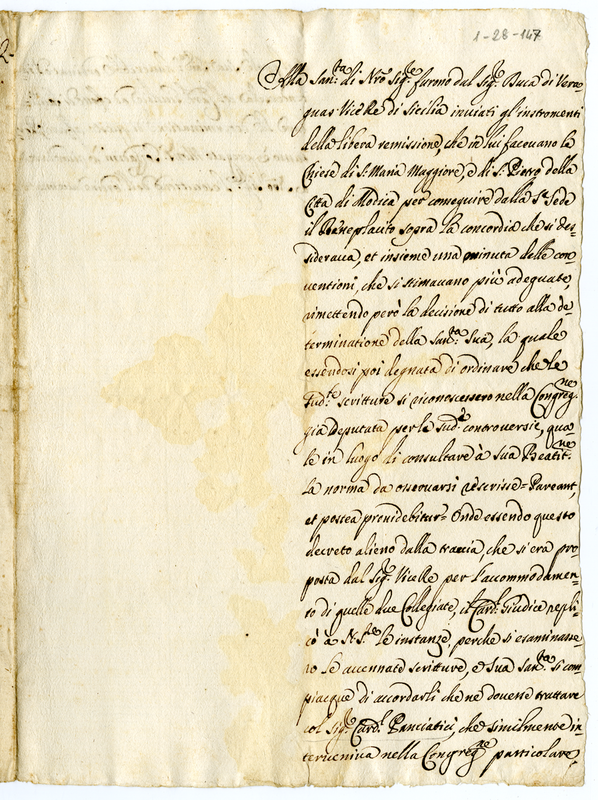 1-28-147
2-
Alla San.ta di Nro Sig.re furono dal Sig.r Duca di Vera=
guas Viceré di Sicilia inviati gl'instromenti
della libera remissione, che in lui facevano le
Chiese di S. Maria Maggiore, e di S. Pietro della
Città di Modica per conseguire dalla S.ta Sede
il Beneplacito sopra la concordia che si de=
siderava, et insieme una minuta delle con=
ventioni, che si stimavano più adeguate,
rimettendo però la decisione di tutto alla de=
terminatione della San.ta Sua, la quale
essendosi poi degnata di ordinare che le
sud.te scritture si riconoscessero nella Congreg.ne
già Deputata per le sud.e controversie, qua
le in luogo di consultare à Sua Beatit.ne
la norma da osservarsi rescrisse= Pareant,
et postea providebitur= Onde essendo questo
decreto alieno dalla traccia, che si era pro
posta dal Sig.r Viceré per l'accommodamen=
to di quelle due Collegiate, il Card. Giudice repli
cò à N. S.re le instanze, perche si esaminasse
ro le accennate scritture, e Sua San.ta si com
piacque di accordarli che ne dovesse trattare
col Sig.r Card.l Panciatici, che similmente in=
terveniva nella Congreg.ne particolare,